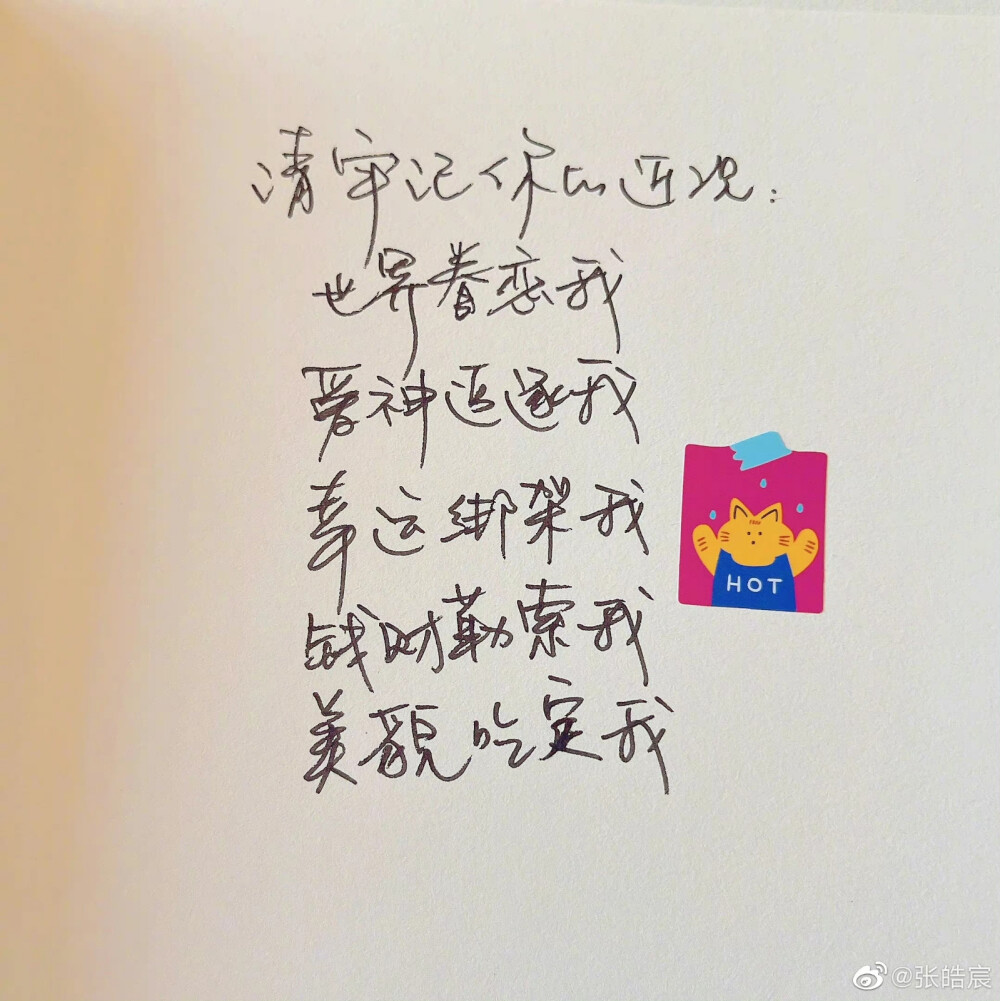 请牢记你的近况：
世界眷恋我
爱神追逐我
幸运绑架我
钱财勒索我
美貌吃定我
HOT
@张皓宸